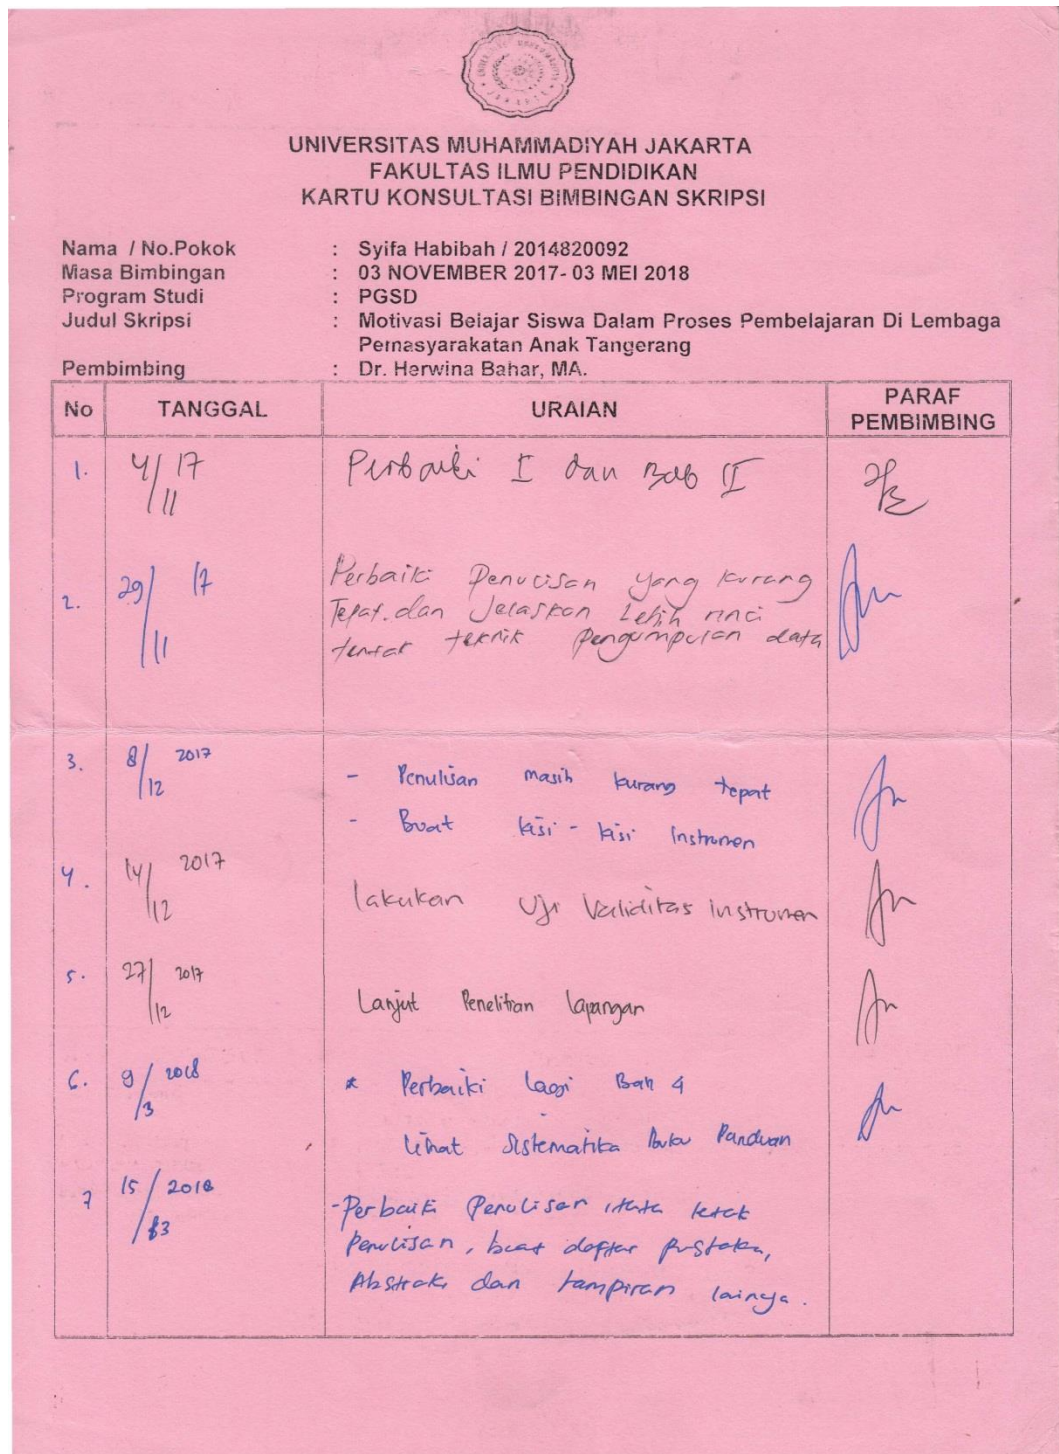 UNIVERSITAS MUHAMMADIYAH JAKARTA
FAKULTAS ILMU PENDIDIKAN
KARTU KONSULTASI BIMBINGAN SKRIPSI
Nama / No.Pokok : Syifa Habibah / 2014820092
Masa Bimbingan : 03 NOVEMBER 2017- 03 MEI 2018
Program Studi : PGSD
Judul Skripsi : Motivasi Belajar Siswa Dalam Proses Pembelajaran Di Lembaga
Pemasyarakatan Anak Tangerang
Pembimbing : Dr. Herwina Bahar, MA.
No TANGGAL URAIAN PARAF PEMBIMBING
1. 4/11 17 Perbaiki I dan Bab II
2. 29/11 17 Perbaiki Penulisan yang kurang
Tepat. dan Jelaskan Lebih rinci
teknik Pengumpulan data
3. 8/12 2017 - Penulisan masih kurang tepat
- Buat kisi - kisi Instrumen
4. 14/12 2017 lakukan Uji Validitas instrumen
5. 27/12 2017 Lanjut Penelitian lapangan
6. 9/3 2018 * Perbaiki lagi Bab 4
Lihat Sistematika Buku Panduan
7 15/3 2018 - Perbaiki Penulisan, tata letak
Penulisan, buat daftar pustaka,
Abstrak dan lampiran lainya.